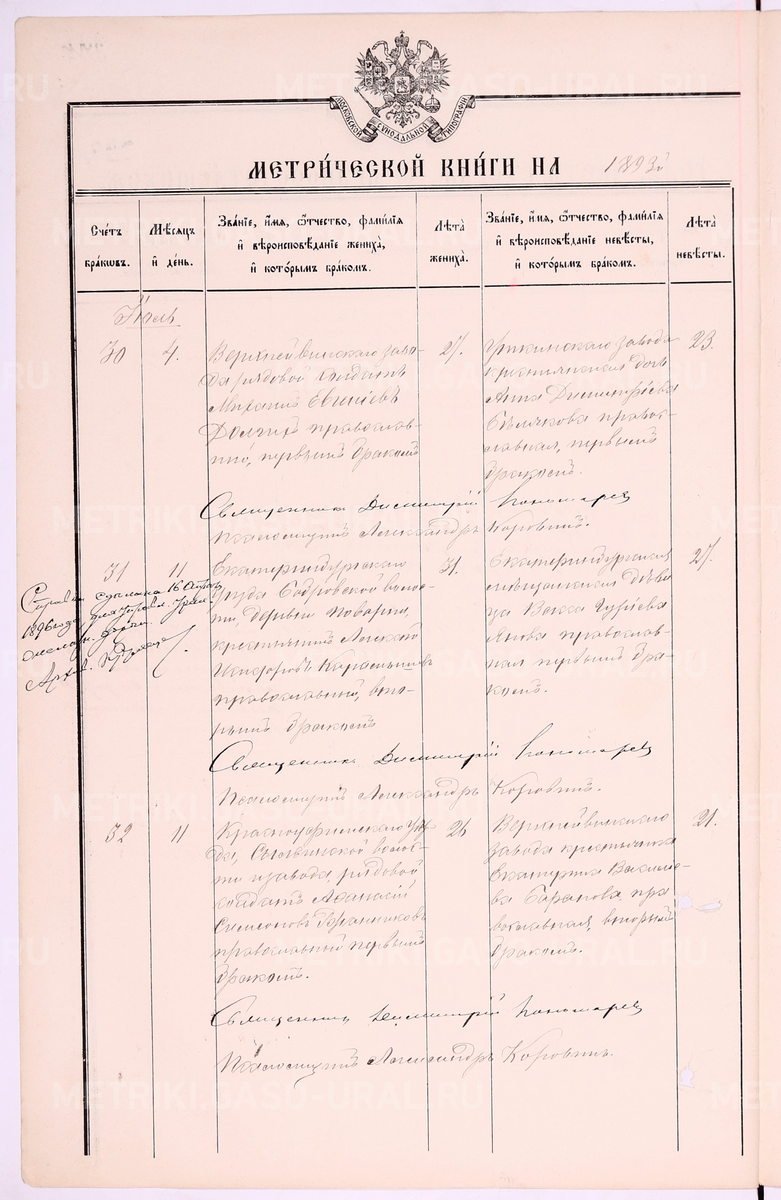 МОСКОВСКОЙ СѴНОДАЛЬНОЙ ТИПОГРАФІИ
МЕТРИ́ЧЕСКОЙ КНИ́ГИ НА 1893й
Сче́тъ бра́кωвъ.
Мѣ́сяцъ и҆ де́нь.
Зва́нїе, и҆́мя, ѻ҆́тчество, фами́лїя
и҆ вѣроисповѣ́данїе жениха̀,
и҆ кото́рымъ бра́комъ.
Лѣ́та жениха̀.
Зва́нїе, и҆́мя, ѻ҆́тчество, фами́лїя
и҆ вѣроисповѣ́данїе невѣ́сты,
и҆ кото́рымъ бра́комъ.
Лѣ́та невѣ́сты.
Іюль
30
4.
Верхнейвинскаго заво-
да рядовой солдатъ
Михаилъ Евгніевъ
православ-
ный, первымъ бракомъ
27.
Уткинскаго завода
крестьянская дочь
Анна Димитріева
православ-
ная, первымъ
бракомъ.
23.
Священникъ Димитрій Пономарев
Псаломщикъ Александръ Коровинъ.
31
11
Екатеринбургскаго
уѣзда волос-
ти, деревни
крестьянинъ Алексѣй
православный, вто-
рымъ бракомъ
31.
Екатеринбургская
мѣщанская дѣви-
ца Гуріева
православ-
ная первымъ бра-
комъ.
27.
Справка сдѣлана 16
1896 года
Архив.
Священникъ Димитрій Пономарев
Псаломщикъ Александръ Коровинъ.
32
11
Красноуфимскаго уѣз-
да, волос-
ти и завода, рядовой
солдатъ Аѳанасій
Симеоновъ
православный первымъ
бракомъ.
26
Верхнейвинскаго
завода крестьянка
Екатерина Василіе-
ва Баранова, пра-
вославная, вторымъ
бракомъ.
21.
Священникъ Димитрій Пономарев
Псаломщикъ Александръ Коровинъ.
METRIKI.GASO-URAL.RU